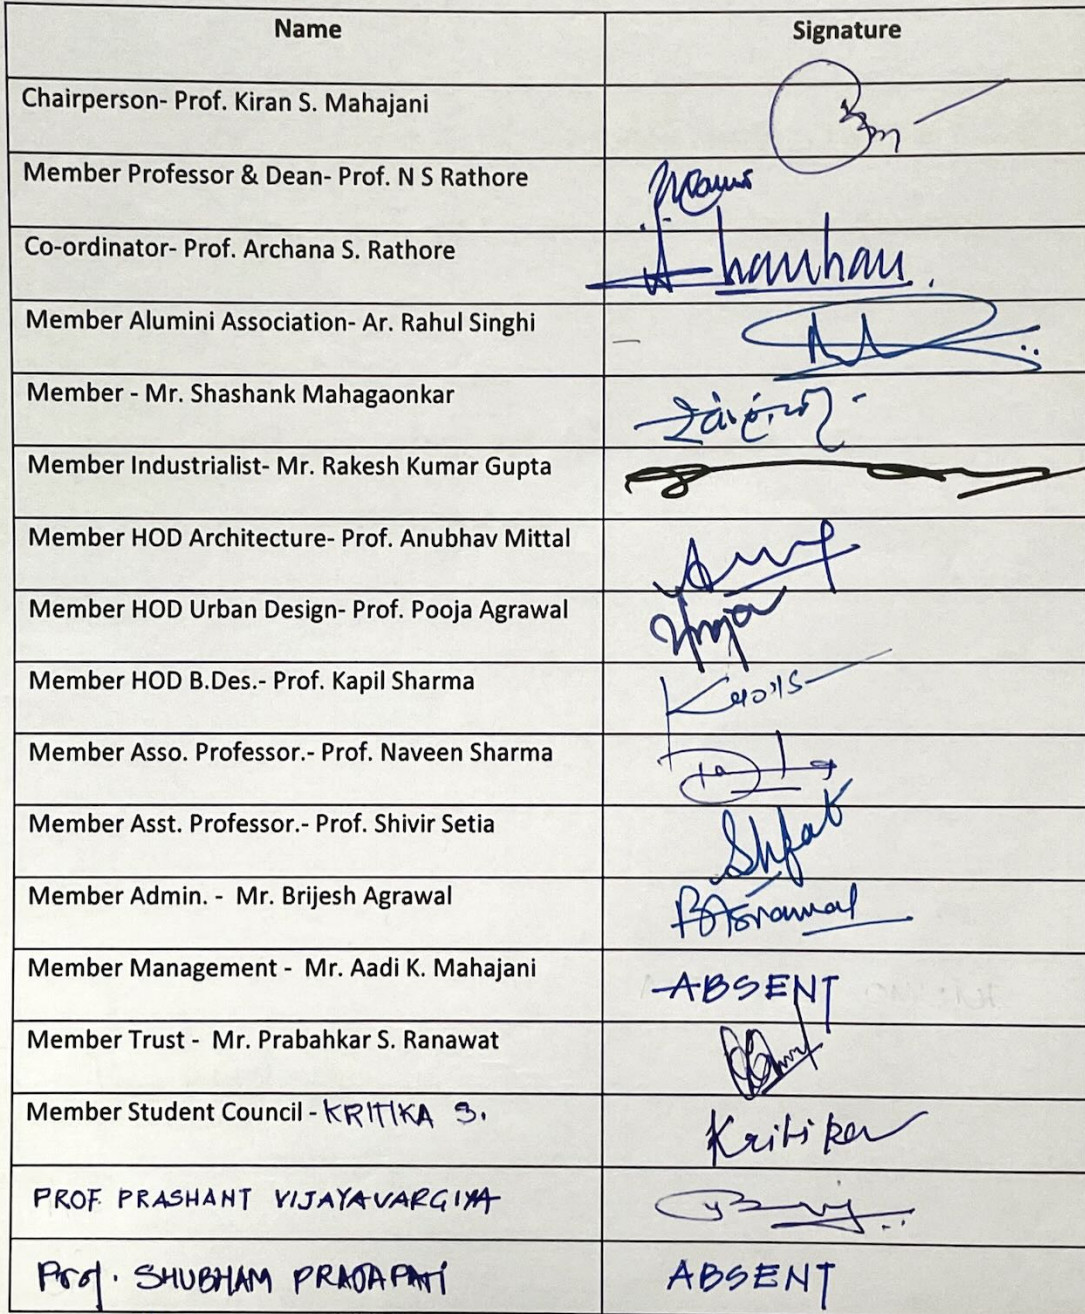 Name Signature
Chairperson- Prof. Kiran S. Mahajani
Member Professor & Dean- Prof. N S Rathore
Co-ordinator- Prof. Archana S. Rathore
Member Alumini Association- Ar. Rahul Singhi
Member - Mr. Shashank Mahagaonkar
Member Industrialist- Mr. Rakesh Kumar Gupta
Member HOD Architecture- Prof. Anubhav Mittal
Member HOD Urban Design- Prof. Pooja Agrawal
Member HOD B.Des.- Prof. Kapil Sharma
Member Asso. Professor.- Prof. Naveen Sharma
Member Asst. Professor.- Prof. Shivir Setia
Member Admin. - Mr. Brijesh Agrawal BAgrawal
Member Management - Mr. Aadi K. Mahajani ABSENT
Member Trust - Mr. Prabahkar S. Ranawat
Member Student Council - KRITIKA S. Kritika
PROF. PRASHANT VIJAYAVARGIYA
Prof. SHUBHAM PRAJAPATI ABSENT